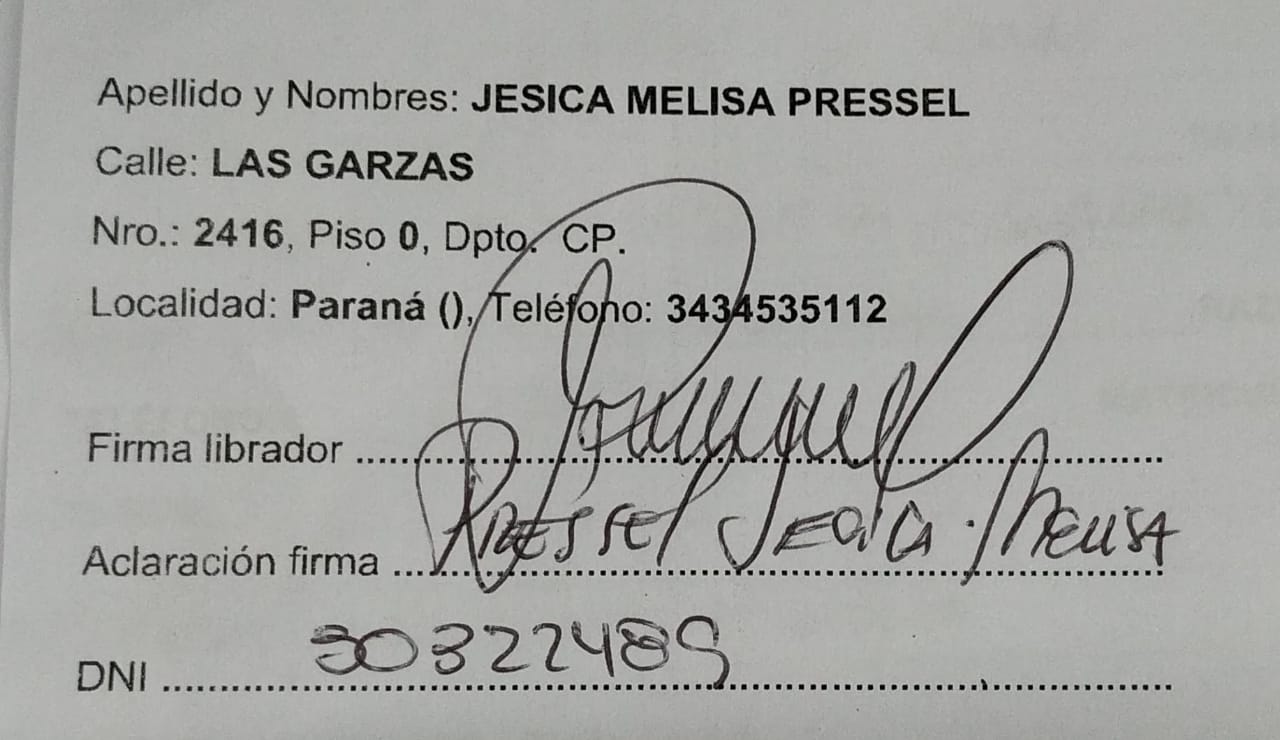 Apellido y Nombres: JESICA MELISA PRESSEL
Calle: LAS GARZAS
Nro.: 2416, Piso 0, Dpto. CP.
Localidad: Paraná (), Teléfono: 3434535112
Firma librador
Aclaración firma PRESSEL JESICA MELISA
DNI 30322489